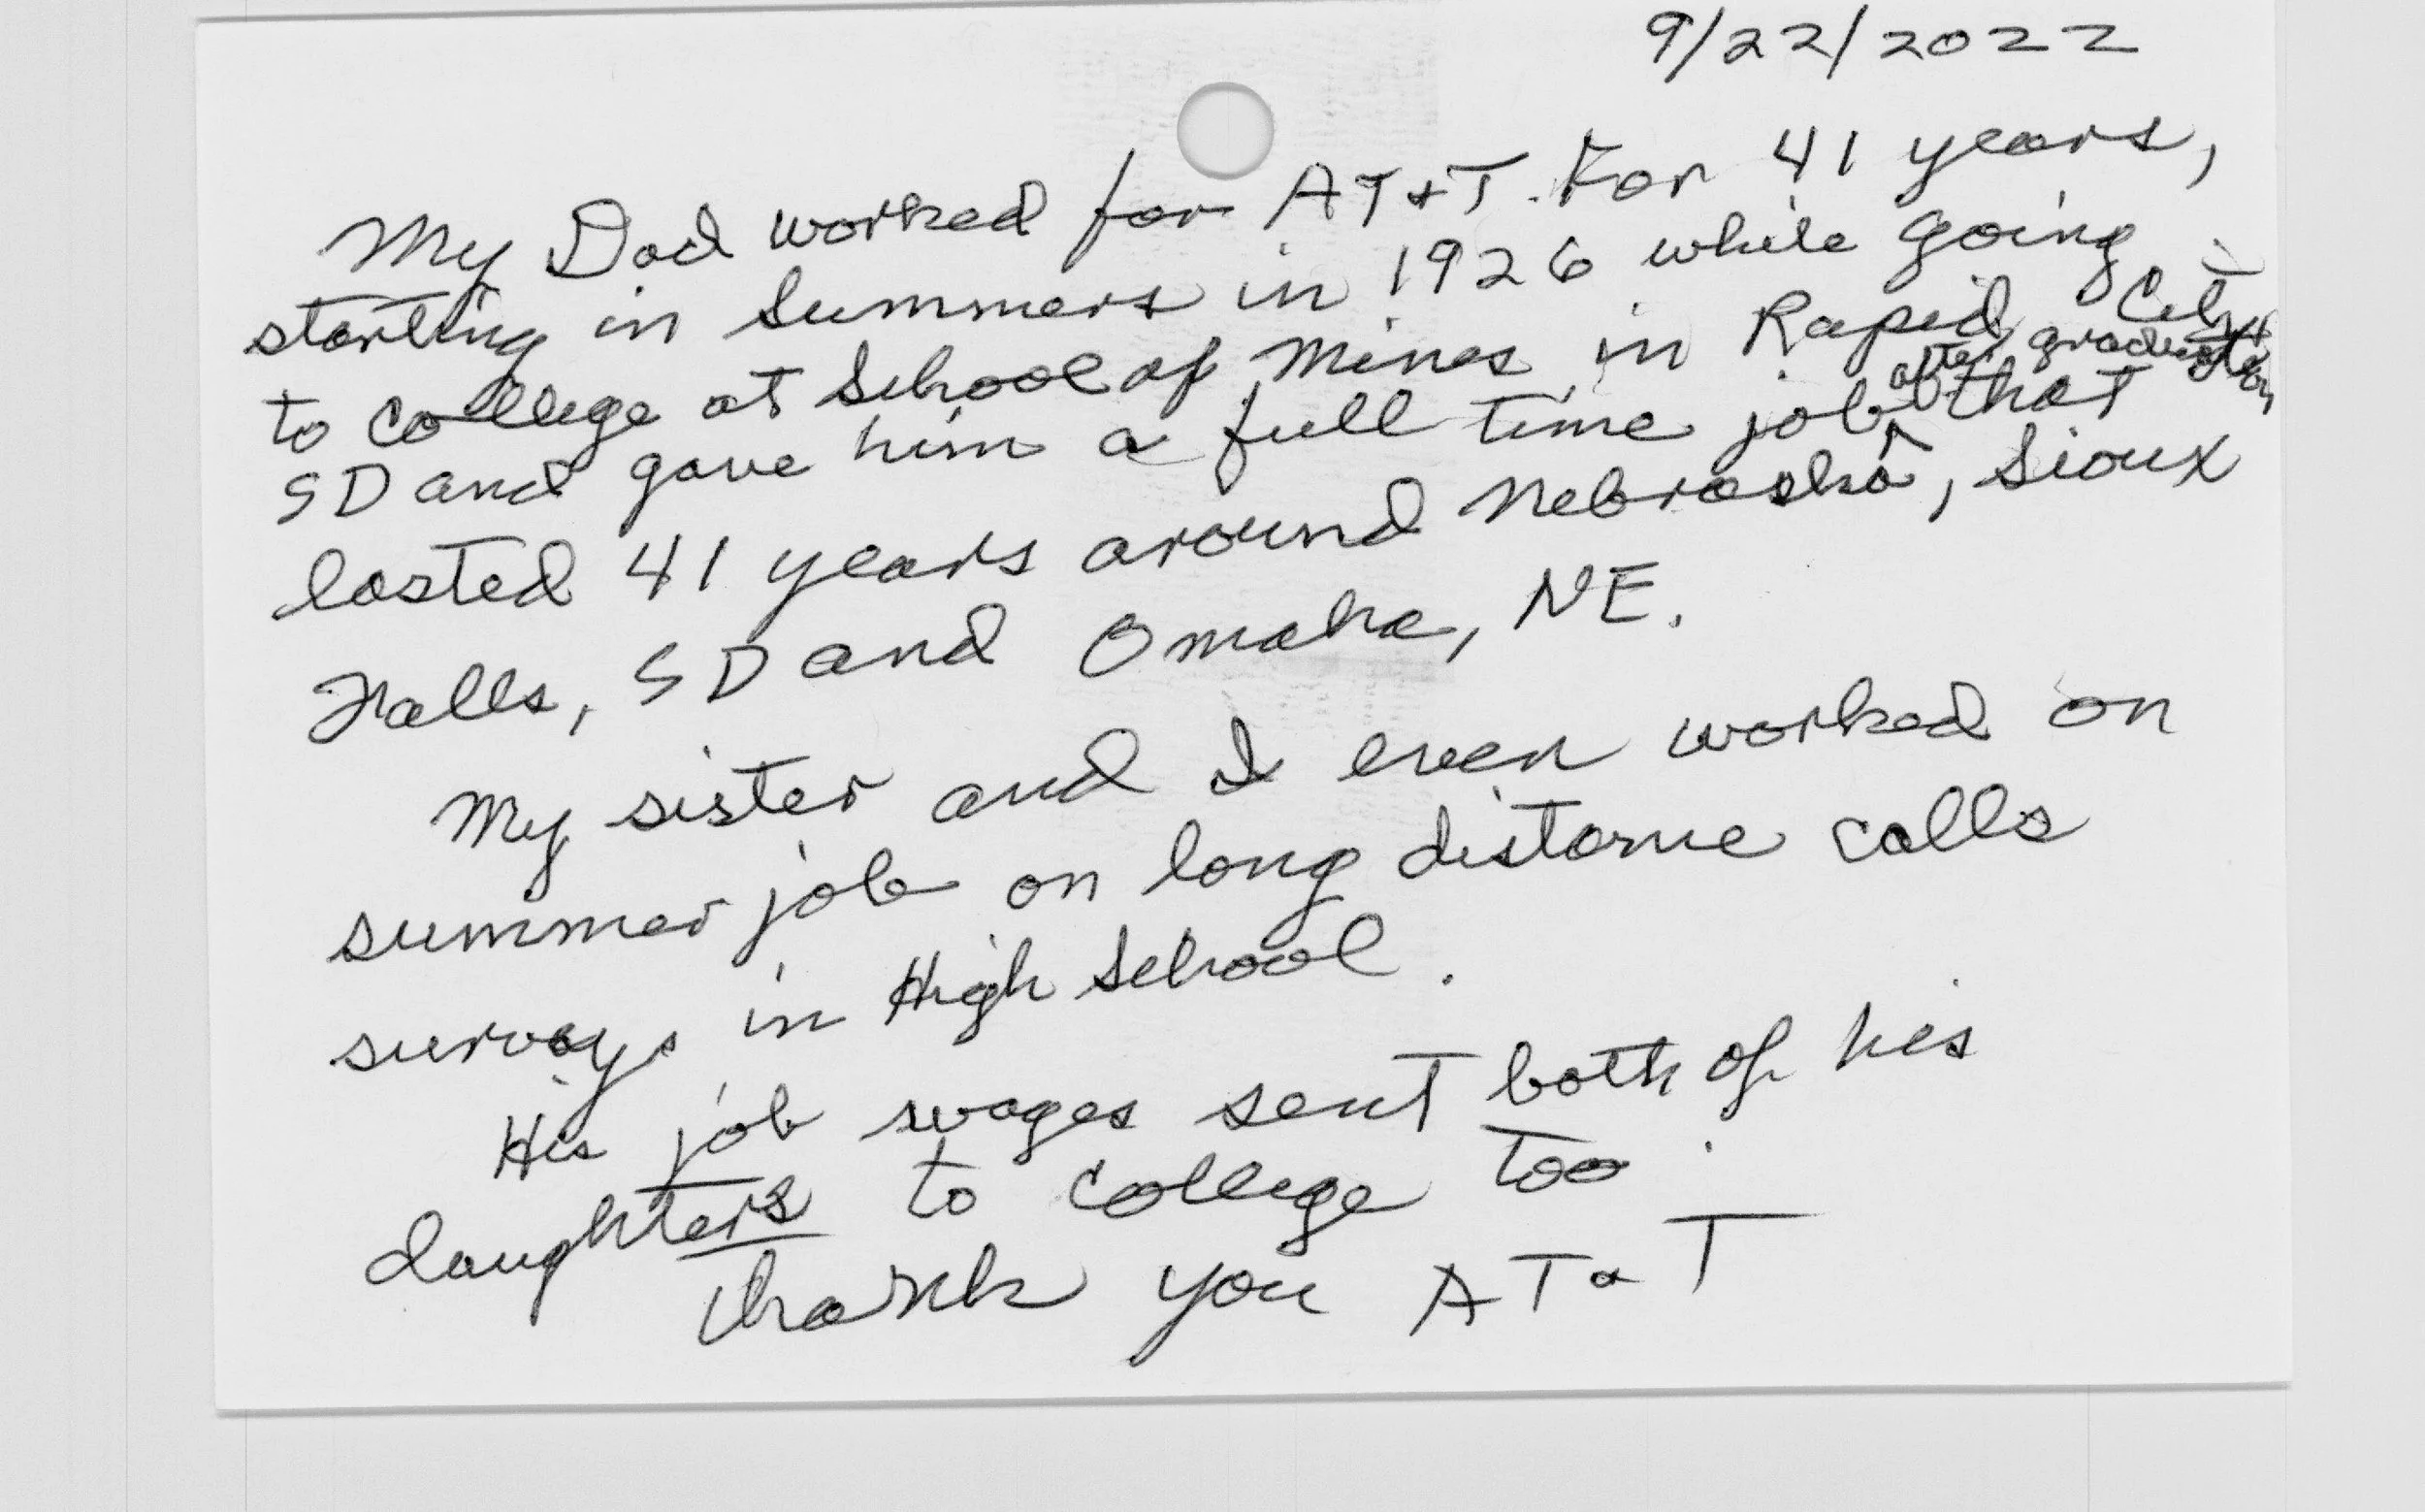 9/22/2022
My Dad worked for AT+T. For 41 years,
starting in Summers in 1926 while going
to college at School of Mines in Rapid City
SD and gave him a full time job after graduation that
lasted 41 years around Nebraska, Sioux
Falls, SD and Omaha, NE.
My sister and I even worked on
summer job on long distance calls
surveys in High School.
His job wages sent both of his
daughters to college too.
Thank you AT&T